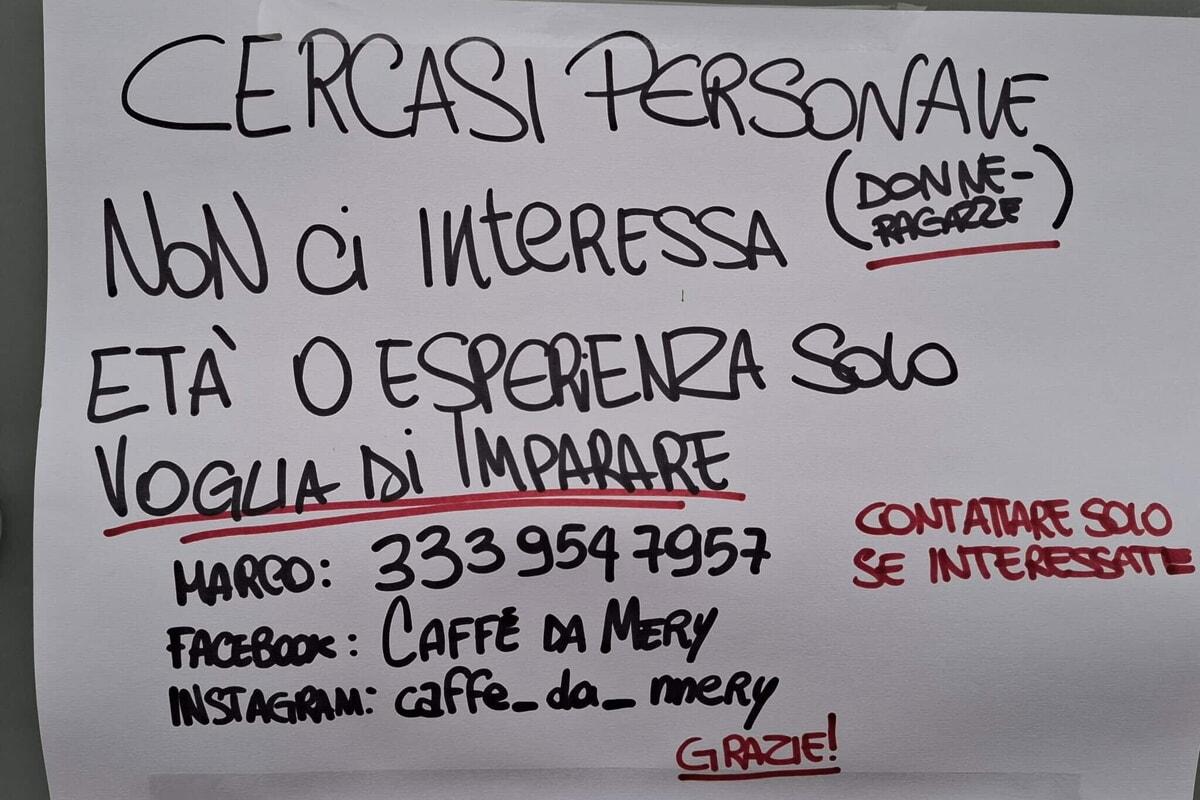 CERCASI PERSONALE
(DONNE-
RAGAZZE)
NON Ci INteRESSA
ETÀ O ESPERiENZA SOLO
VOGLIA Di IMPARARE
MARCO: 333 954 7957
FACEBOOK: CAFFÈ DA MERY
INSTAGRAM: caffe_da_mery
CONTATTARE SOLO
SE INTERESSATE
GRAZIE!